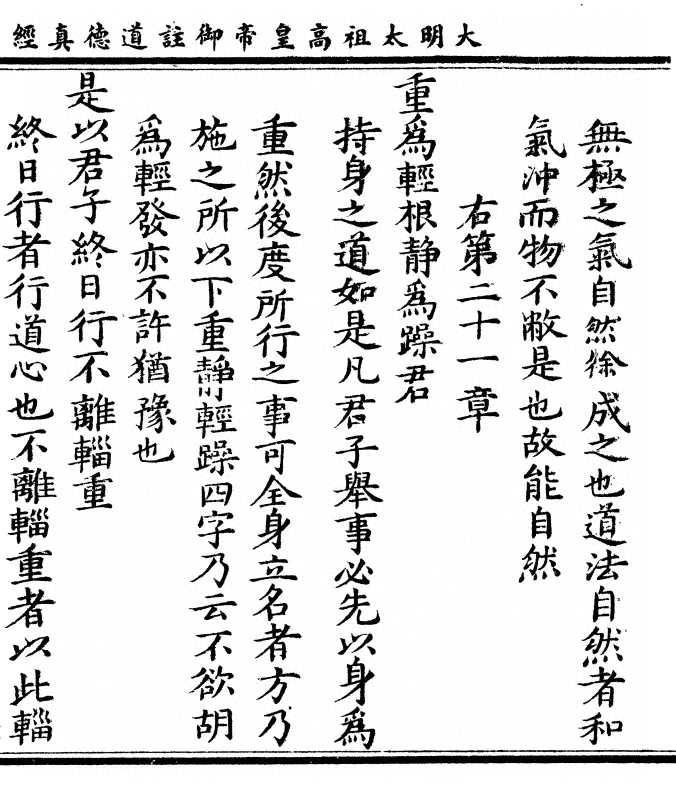 大明太祖高皇帝御註道德真經
無極之氣自然徐成之也道法自然者和
氣沖而物不敝是也故能自然
右第二十一章
重為輕根靜為躁君
持身之道如是凡君子舉事必先以身為
重然後度所行之事可全身立名者方乃
施之所以下重靜輕躁四字乃云不欲胡
為輕發亦不許猶豫也
是以君子終日行不離輜重
終日行者行道心也不離輜重者以此輜